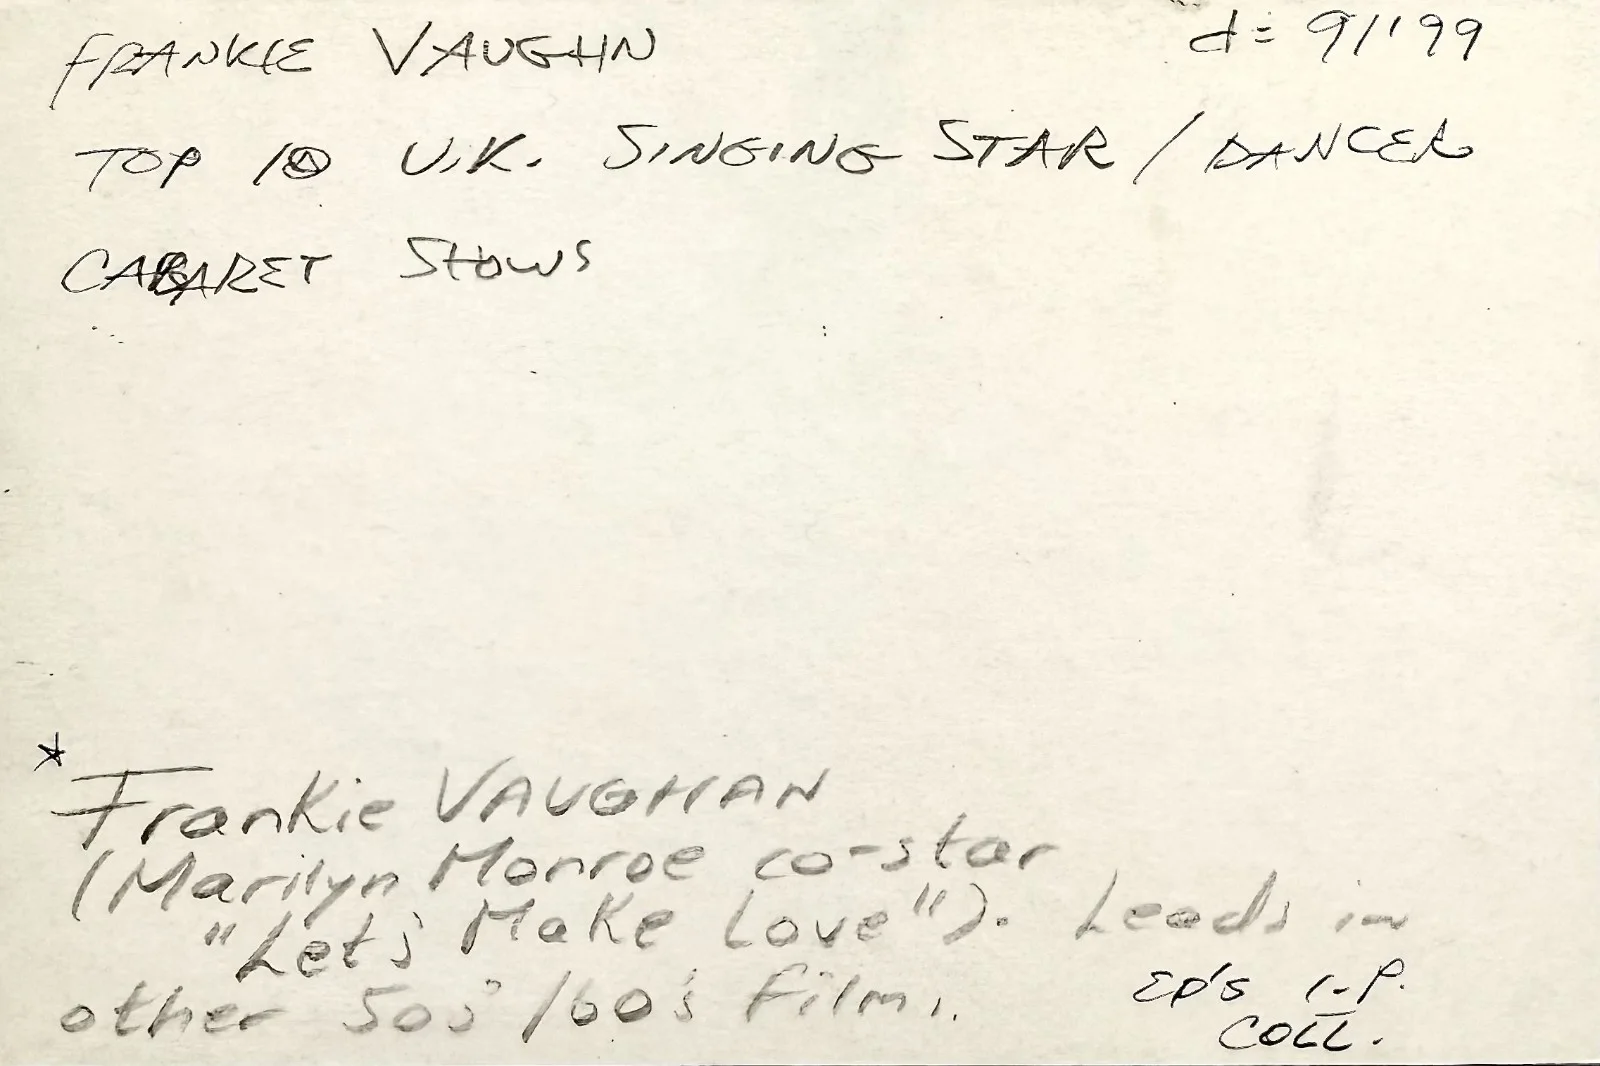 FRANKIE VAUGHN d= 9/'99
TOP 10 U.K. SINGING STAR / DANCER
CABARET SHOWS
*
Frankie VAUGHAN
(Marilyn Monroe co-star
"Let's Make Love"). Leads in
other 50s' /60's films.
ED'S I.P.
COLL.